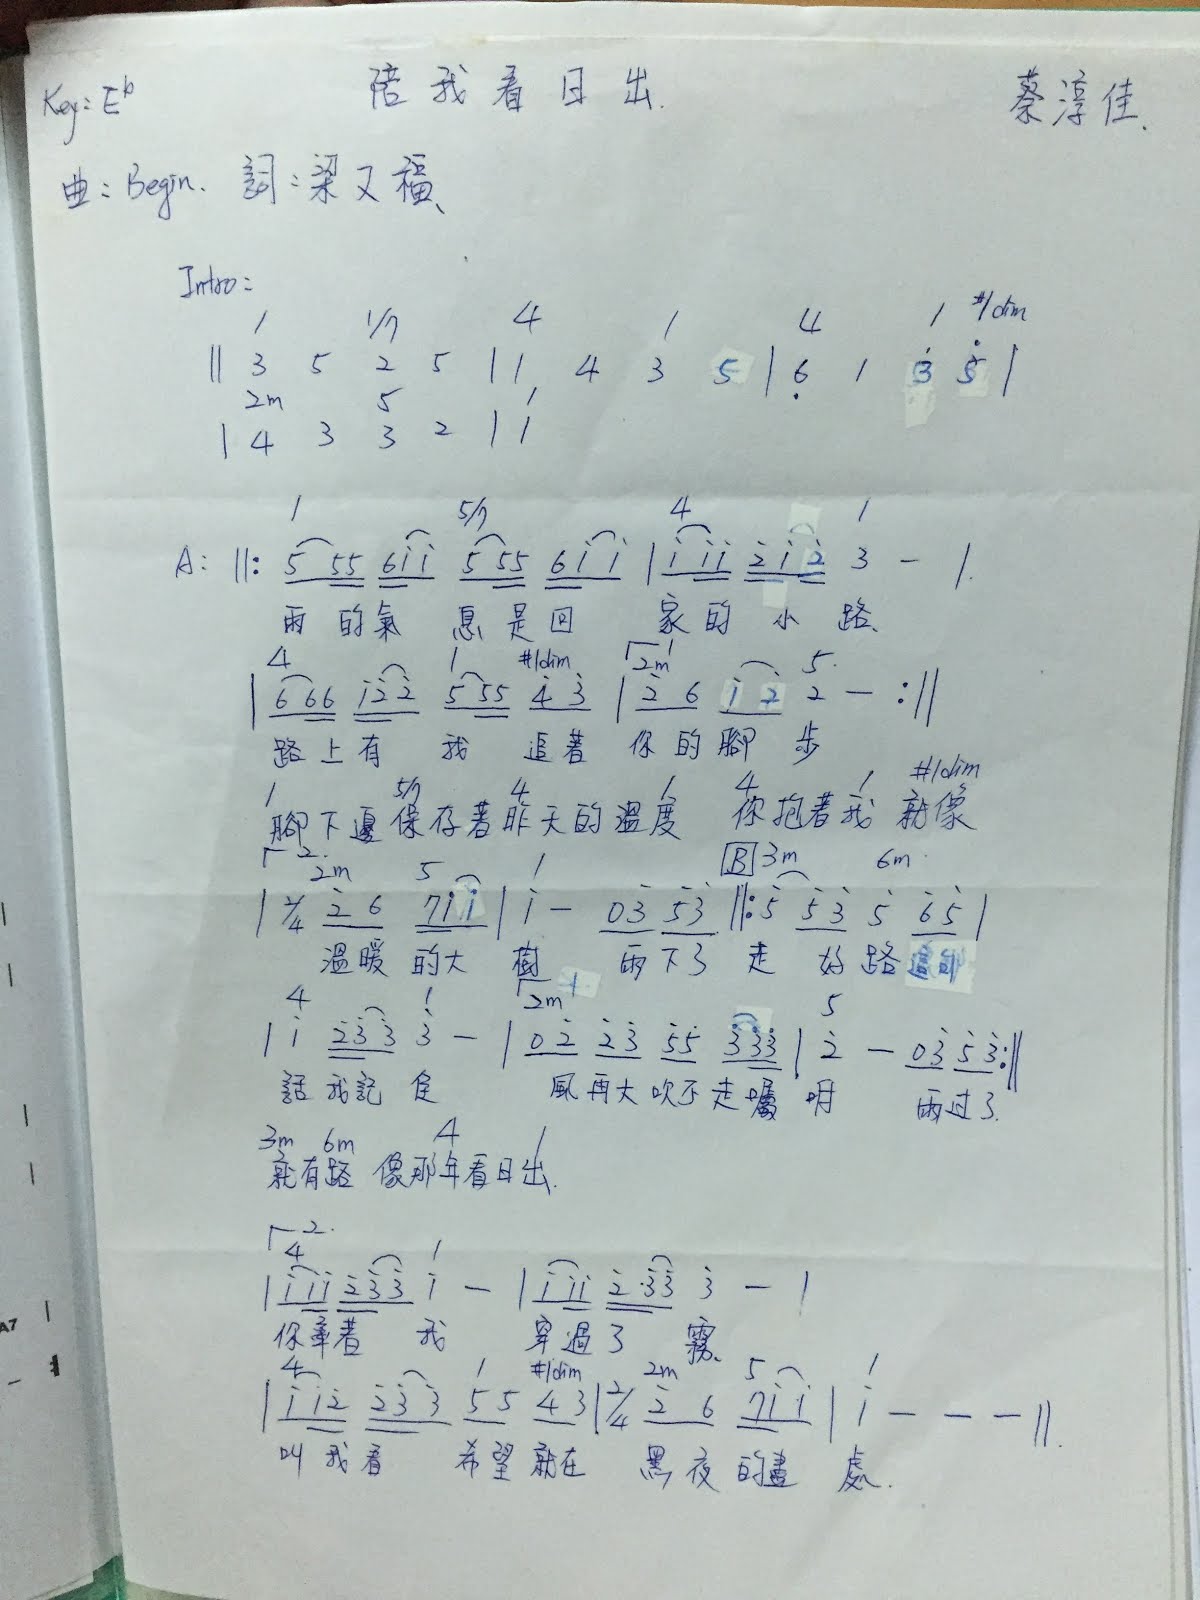 Key: Eb 陪我看日出. 蔡淳佳.
曲: Begin. 詞: 梁文福.
Intro:
1 1/7 4 1 4 1 #1dim
|| 3 5 2 5 | 1 4 3 5 | 6 1 3 5 |
2m 5 1
| 4 3 3 2 | 1
1 5/7 4 1
A: ||: 5 55 6ii 5 55 6ii | i ii 2i2 3 - |
雨 的氣 息是回 家的小 路.
4 1 #1dim 2m 5
| 6 66 i22 5 55 4 3 | 2 6 i 2 2 - :||
路上有 我 追著 你的腳 步
1 5/7 4 1 4 1 #1dim
腳下邊保存著昨天的溫度 你抱著我 就像
2. 2m 5 1 B 3m 6m
| 2/4 2 6 7ii | i - 03 53 ||: 5 53 5 65 |
溫暖 的大 樹 雨下了 走 好路 這句
4 1 2m 5
| i 233 3 - | 02 23 55 333 | 2 - 03 53 :||
話 我記 住 風再大吹不走囑 咐 雨过了
3m 6m 4 1
就有路 像那年看日出.
2.
4 1
| i ii 233 i - | i ii 2 33 3 - |
你牽著 我 穿過了 霧.
4 1 #1dim 2m 5 1
| i i2 233 5 5 4 3 | 2/4 2 6 7ii | i - - - ||
叫我看 希望 就在 黑夜的盡 處.
A7